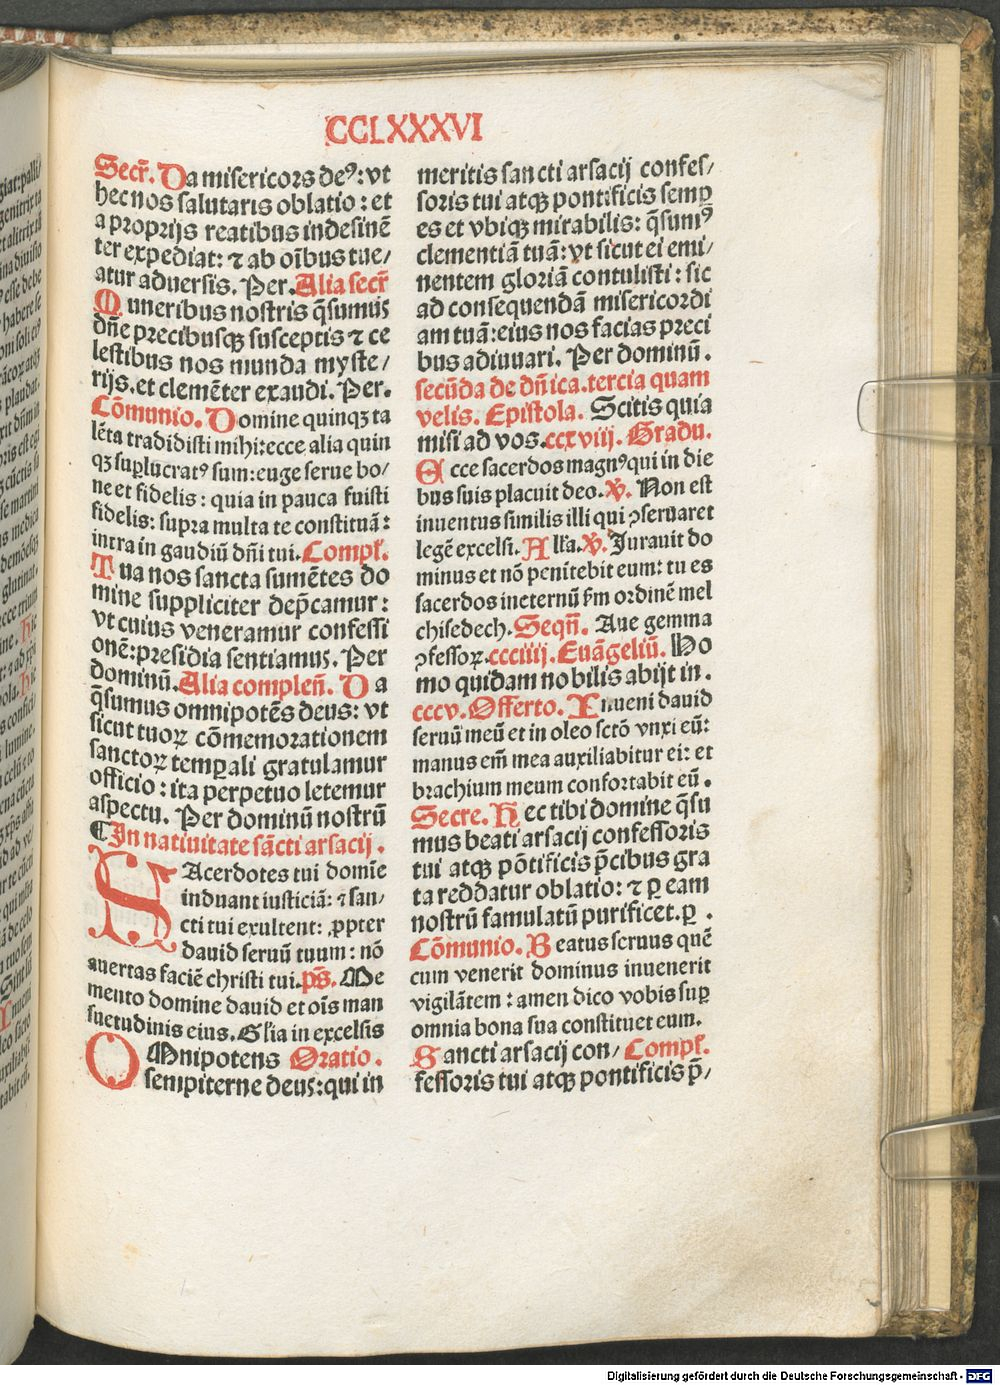 CCLXXXVI
Secr̄. Da misericors deꝰ: vt
hec nos salutaris oblatio: et
a proprijs reatibus indesinē
ter expediat: ⁊ ab oībus tue/
atur aduersis. Per. Alia secr̄
Muneribus nostris q̄sumus
dn̄e precibusqꝫ susceptis ⁊ ce
lestibus nos munda myste/
rijs. et clemēter exaudi. Per.
Cōmunio. Domine quinqꝫ ta
lēta tradidisti mihi: ecce alia quin
qꝫ suꝑlucratꝰ sum: euge serue bo/
ne et fidelis: quia in pauca fuisti
fidelis: supra multa te constituā:
intra in gaudiū dn̄i tui. Compl̄.
Tua nos sancta sumētes do
mine suppliciter dep̄camur:
vt cuius veneramur confessi
onē: presidia sentiamus. Per
dominū. Alia complen̄. Da
q̄sumus omnipotēs deus: vt
sicut tuoꝝ cōmemorationem
sanctoꝝ temꝑali gratulamur
officio: ita perpetuo letemur
aspectu. Per dominū nostrū
¶In natiuitate sācti arsacij.
SAcerdotes tui domīe
induant iusticiā: ⁊ san/
cti tui exultent: ꝓpter
dauid seruū tuum: nō
auertas faciē christi tui. ps̄. Me
mento domine dauid et oīs man
suetudinis eius. Gl̄ia in excelsis
OMnipotens Oratio.
sempiterne deus: qui in
meritis sancti arsacij confes/
soris tui atqꝫ pontificis semꝑ
es et vbiqꝫ mirabilis: q̄sumꝰ
clementiā tuā: vt sicut ei emi/
nentem gloriā contulisti: sic
ad consequendā misericordi
am tuā: eius nos facias preci
bus adiuuari. Per dominū.
secūda de dn̄ica. tercia quam
velis. Epistola. Scitis quia
misi ad vos. ccxviij. Gradu.
Ecce sacerdos magnꝰ qui in die
bus suis placuit deo. v̄. Non est
inuentus similis illi qui ꝯseruaret
legē excelsi. All̄a. v̄. Jurauit do
minus et nō penitebit eum: tu es
sacerdos ineternū s̄m ordinē mel
chisedech. Seqn̄. Aue gemma
ꝯfessoꝝ. ccciiij. Euāgeliū. Ho
mo quidam nobilis abijt in.
cccv. Offerto. Inueni dauid
seruū meū et in oleo sctō vnxi eū:
manus em̄ mea auxiliabitur ei: et
brachium meum confortabit eū.
Secre. Hec tibi domine q̄su
mus beati arsacij confessoris
tui atqꝫ pōtificis p̄cibus gra
ta reddatur oblatio: ⁊ ꝑ eam
nostrū famulatū purificet. ꝑ.
Cōmunio. Beatus seruus quē
cum venerit dominus inuenerit
vigilātem: amen dico vobis suꝑ
omnia bona sua constituet eum.
Sancti arsacij con/ Compl̄.
fessoris tui atqꝫ pontificis p̄/
Digitalisierung gefördert durch die Deutsche Forschungsgemeinschaft - DFG